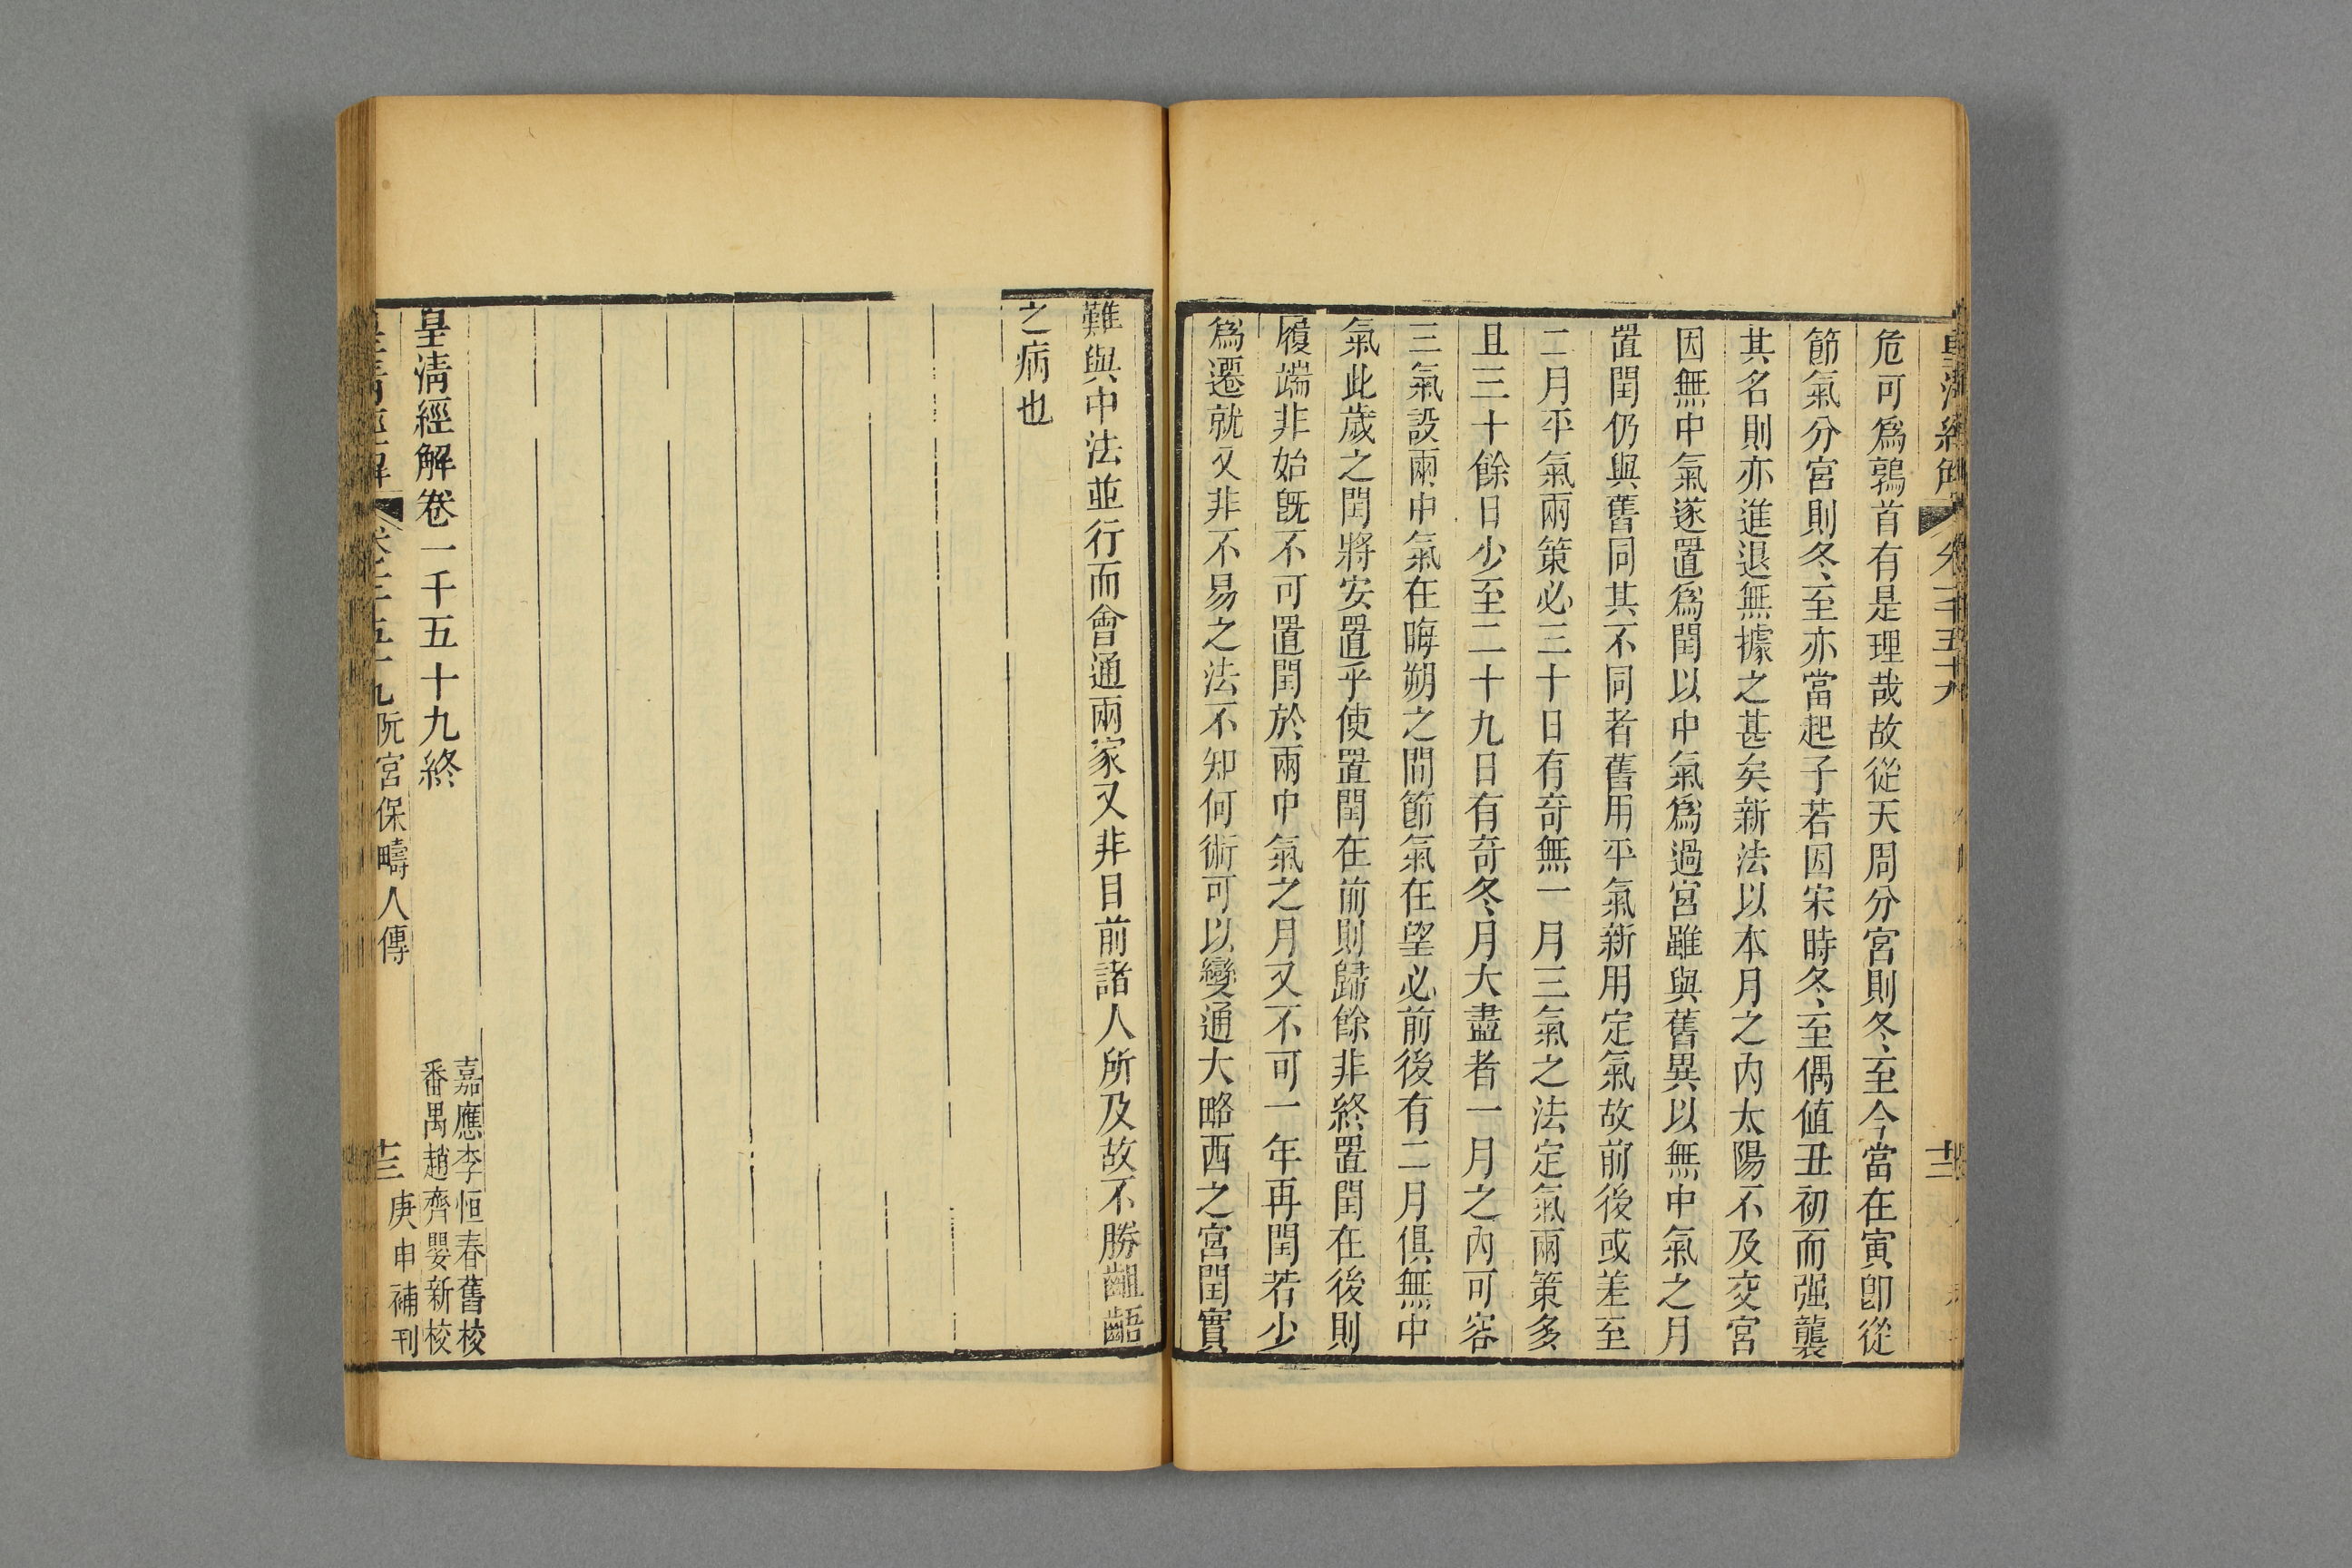 皇清經解 卷一千五十九
危可爲鶉首有是理哉故從天周分宮則冬至今當在寅卽從
節氣分宮則冬至亦當起子若因宋時冬至偶値丑初而强襲
其名則亦進退無據之甚矣新法以本月之內太陽不及交宮
因無中氣遂置爲閏以中氣爲過宮雖與舊異以無中氣之月
置閏仍與舊同其不同者舊用平氣新用定氣故前後或差至
二月平氣兩策必三十日有奇無一月三氣之法定氣兩策多
且三十餘日少至二十九日有奇冬月大盡者一月之內可容
三氣設兩中氣在晦朔之間節氣在望必前後有二月俱無中
氣此歲之閏將安置乎使置閏在前則歸餘非終置閏在後則
履端非始旣不可置閏於兩中氣之月又不可一年再閏若少
爲遷就又非不易之法不知何術可以變通大略西之宮閏實
難與中法並行而會通兩家又非目前諸人所及故不勝齟齬
之病也
嘉應李恒春舊校
番禺趙齊嬰新校
皇清經解卷一千五十九終
皇清經解 卷一千五十九 阮宮保疇人傳 十三 庚申補刊